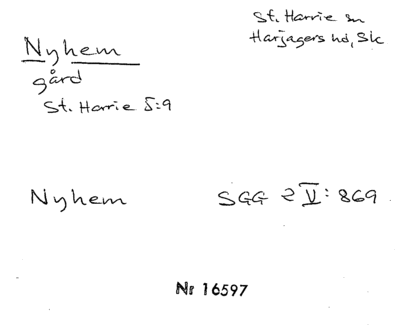 St. Harrie sn
Harjagers hd, Sk
Nyhem
gård
St. Harrie 5:9
Nyhem SGG 2 V: 869
Nr 16597